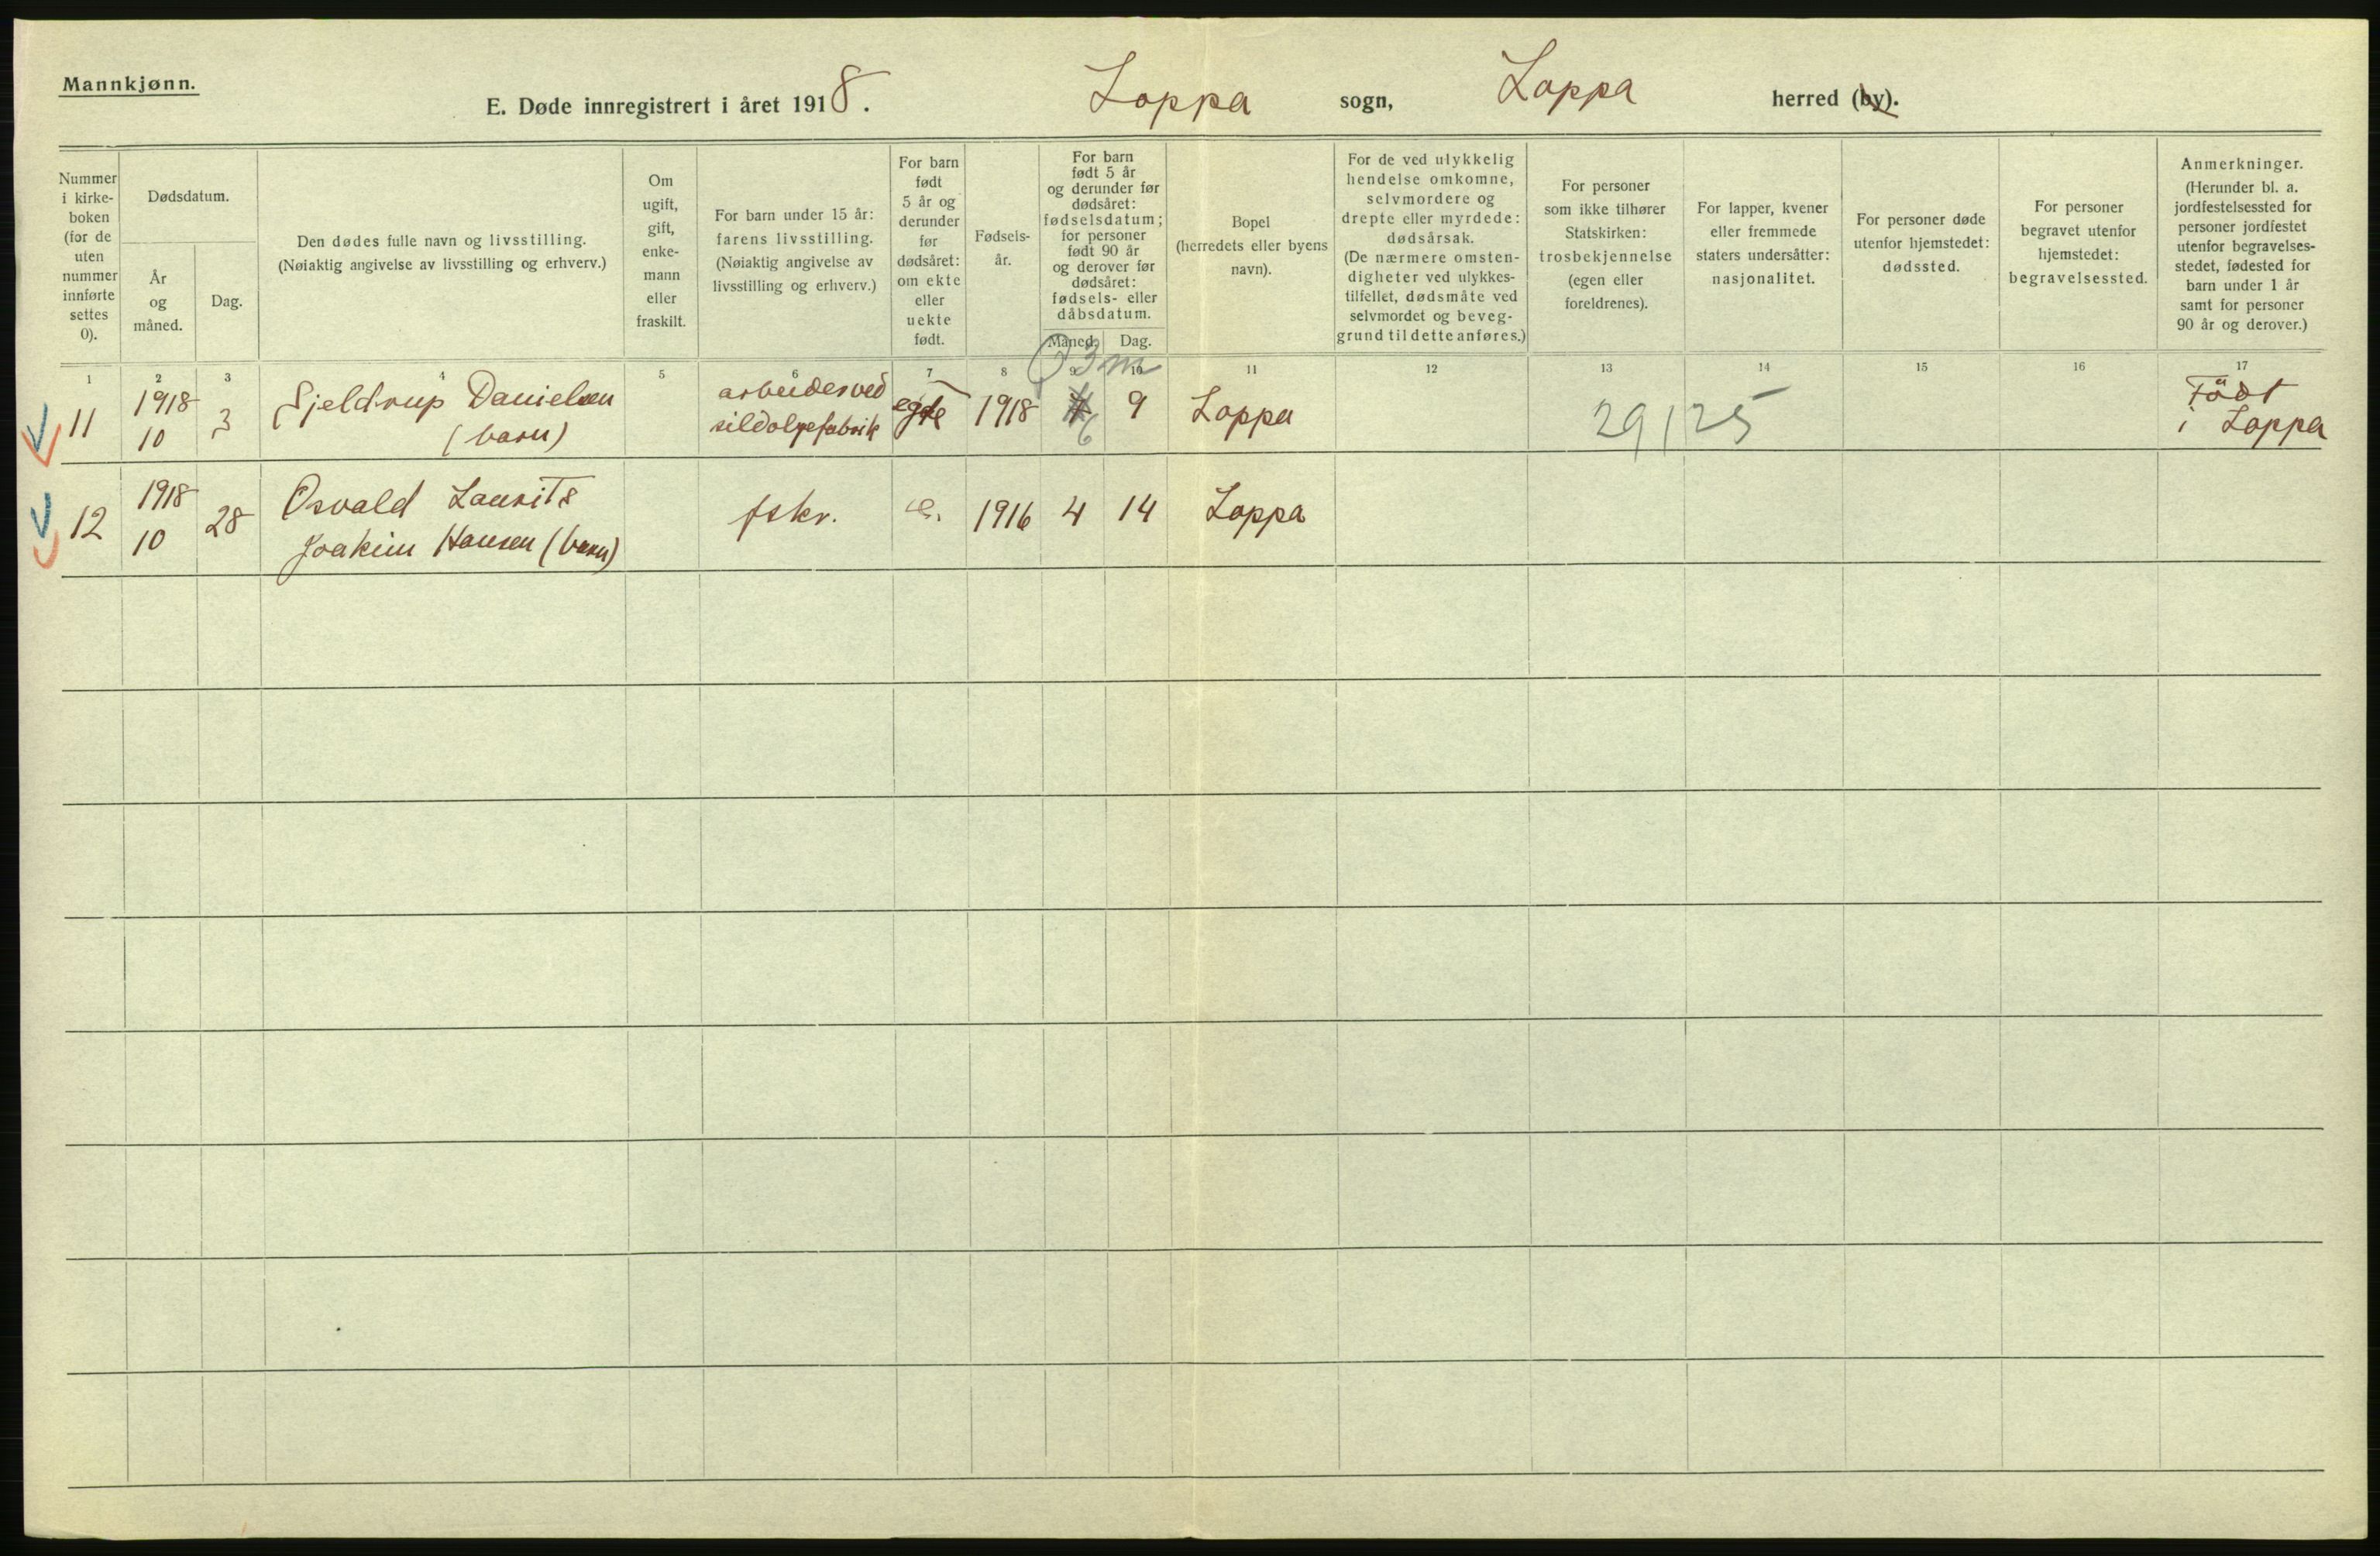 Mannkjønn.
E. Døde innregistrert i året 1918. Loppa sogn, Loppa herred (by).
Nummer
i kirke-
boken
(for de
uten
nummer
innførte
settes
0).
Dødsdatum.
År
og
måned.
Dag.
Den dødes fulle navn og livsstilling.
(Nøiaktig angivelse av livsstilling og erhverv.)
Om
ugift,
gift,
enke-
mann
eller
fraskilt.
For barn under 15 år:
farens livsstilling.
(Nøiaktig angivelse av
livsstilling og erhverv.)
For barn
født
5 år og
derunder
før
dødsåret:
om ekte
eller
uekte
født.
Fødsels-
år.
For barn
født 5 år
og derunder før
dødsåret:
fødselsdatum;
for personer
født 90 år
og derover før
dødsåret:
fødsels- eller
dåbsdatum.
Måned. Dag.
Bopel
(herredets eller byens
navn).
For de ved ulykkelig
hendelse omkomne,
selvmordere og
drepte eller myrdede:
dødsårsak.
(De nærmere omsten-
digheter ved ulykkes-
tilfellet, dødsmåte ved
selvmordet og beveg-
grund til dette anføres.)
For personer
som ikke tilhører
Statskirken:
trosbekjennelse
(egen eller
foreldrenes).
For lapper, kvener
eller fremmede
staters undersåtter:
nasjonalitet.
For personer døde
utenfor hjemstedet:
dødssted.
For personer
begravet utenfor
hjemstedet:
begravelsessted.
Anmerkninger.
(Herunder bl. a.
jordfestelsessted for
personer jordfestet
utenfor begravelses-
stedet, fødested for
barn under 1 år
samt for personer
90 år og derover.)
1 2 3 4 5 6 7 8 9 10 11 12 13 14 15 16 17
3 m
11 1918 3 Gjeldrup Danielsen arbeider ved egte 1918 6 9 Loppa 29 / 25 Født
10 (barn) sildoljefabrik i Loppa
12 1918 28 Osvald Laurits fskr. e. 1916 4 14 Loppa
10 Joakim Hansen (barn)